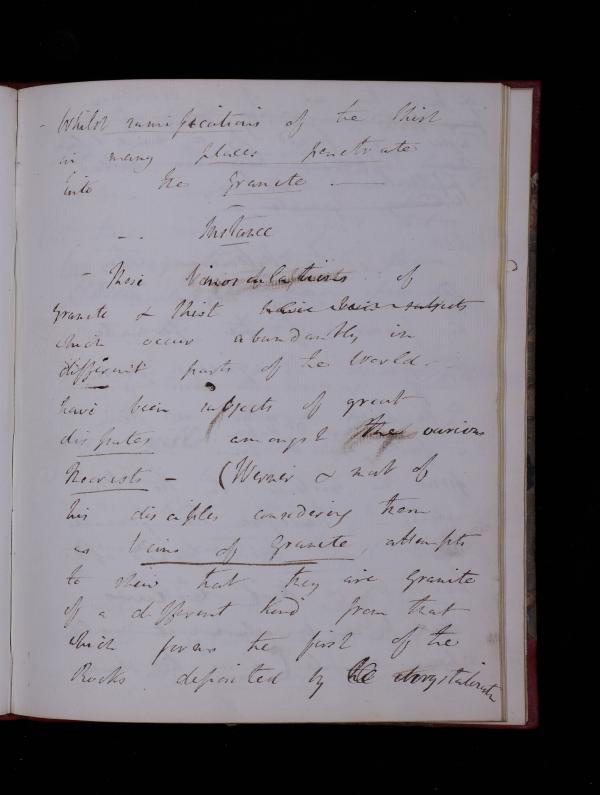 - Whilst ramifications of the Shist
in many places penetrate
into the Granite. —
- Instance
- These of
Granite & Shist have been subjects
which occur abundantly in
different parts of the World. -
have been subjects of great
disputes amongst the various
Theorists - (Werner & most of
his disciples considering them
as Veins of Granite, attempts
to shew that they are Granite
of a different kind from that
which forms the first of the
Rocks deposited by